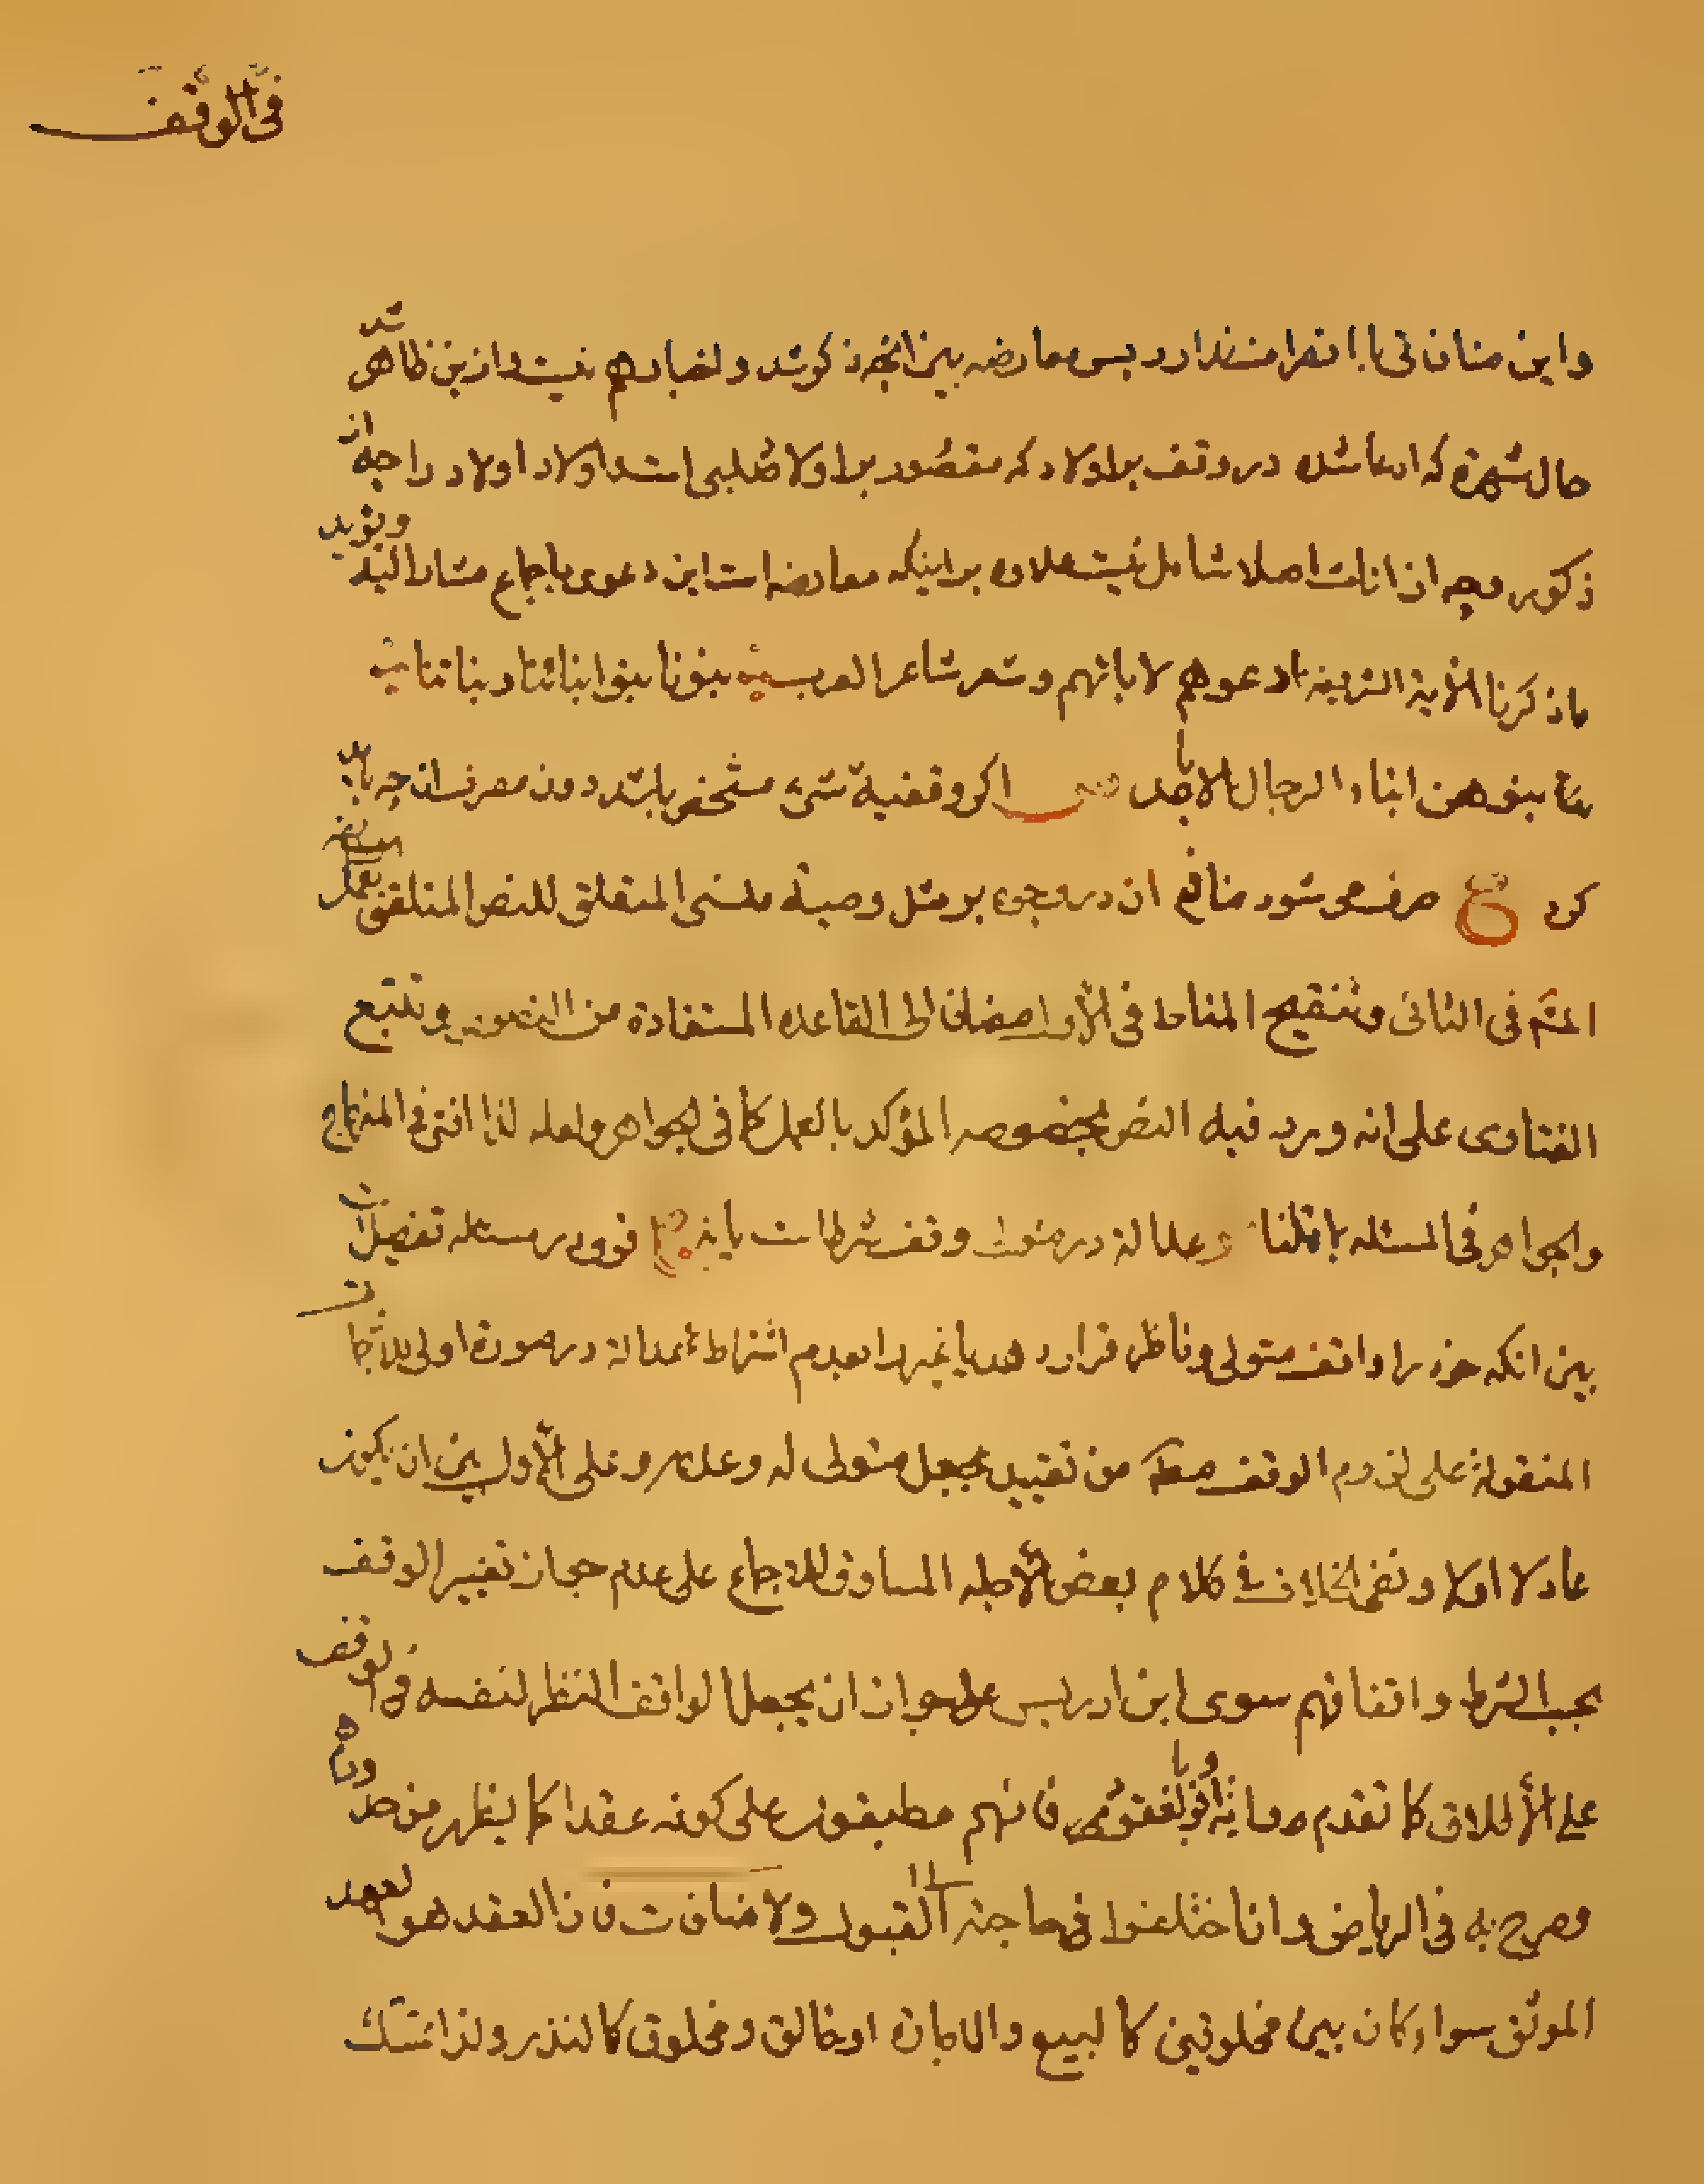 فی الوقف
واین منافاتی با انفراض ندارد پس معارضه بین انچه ذکر شد و اخبار هم نیست و ازین ظاهر شد
حال شهرة که ادعا شده در وقف بر اولاد که مقصود بر اولاد صلبی است و اولاد اولاد را چه از
ذکور و چه از اناث اصلا شامل نیست علاوه بر اینکه معارضه است این دعوی باجماع مشار الیه و یؤید
ما ذکرنا الآیة الشریفه ادعوهم لابائهم و شعر شاعر العرب بنونا بنو ابنائنا و بناتنا
بنوهن ابناء الرجال الاباعد س اکر وقفیة شیء مشخص باشد دون مصرف ان چه باید
کرد ج صرف می شود منافع ان در وجوه بر مثل وصیة المتعلق للنص المتلقی بعمل
فی الثانی و تنقیح المناط فی الأول مضافا الی القاعده المستفادة من النصوص و تتبع
الفتاوی علی انه ورد فیه النص بخصوصه المؤکد بالعمل کما فی الجواهر ولعله لذا افتی فی المنهاج
والجواهر فی المسئله بما قلنا س عدالة در متولی وقف شرط است یا نه ج قوی در مسئله تفصیل است
بین انکه خود را واقف متولی و ناظر قرار دهد یا غیر را بعدم اشتراط عدالة در صورة اولی للاجماعات
المنقولة علی لزوم الوقف من تقیید بجعل متولی له وعدمه وعلی الأول بین ان یکون
عادلا اولا ونفی الخلاف فی کلام بعض الأجله المساوق للاجماع علی عدم جواز تغییر الوقف
بحسب الشرط واتفاقهم سوی ابن ادریس علی جواز ان یجعل الواقف النظر لنفسه فی الوقف
علی الأطلاق کما تقدم وفانهم مطبقون علی کونه عقدا کما یظهر من حدوده
وصرح به فی الریاض وان اختلفوا فی حاجته الی القبول ولا منافات فان العقد هو العهد
الموثق سواء کان بین مخلوقین کالبیع والاجارة او خالق ومخلوق کالنذر ولذا تمسک